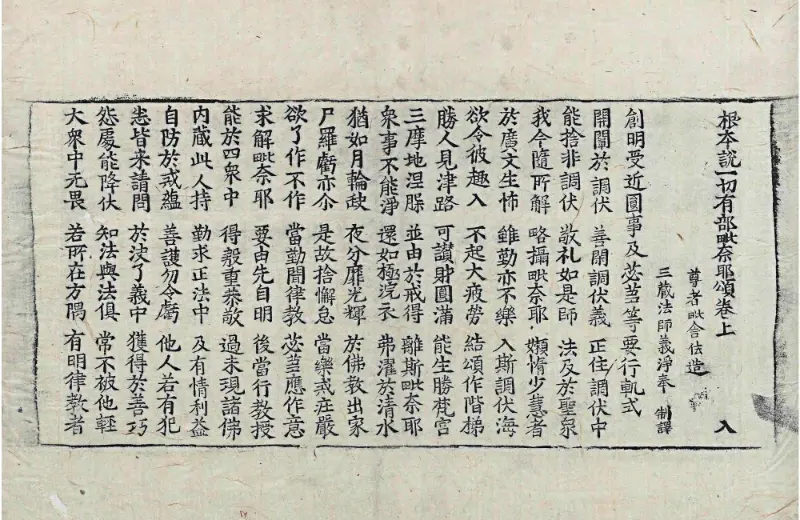 根本說一切有部毗奈耶頌卷上 入
尊者毗舍佉造
三藏法師義淨奉 制譯
創明受近圓事及苾芻等要行軌式
開闡於調伏 善閑調伏義 正住調伏中
能捨非調伏 敬礼如是師 法及於聖衆
我今隨所解 略攝毗奈耶 嬾惰少慧者
於廣文生怖 雖勤亦不樂 入斯調伏海
欲令彼趣入 不起大疲勞 結頌作階梯
勝人見津路 可讚財圓滿 能生勝梵宮
三摩地涅槃 並由於戒得 離斯毗奈耶
衆事不能淨 還如極浣衣 弗濯於清水
猶如月輪政 夜分靡光輝 於佛教出家
尸羅虧亦尒 是故捨懈怠 當樂戒莊嚴
欲了作不作 當勤聞律教 苾芻應作意
求解毗奈耶 要由先自明 後當行教授
能於四衆中 得殷重恭敬 過未現諸佛
內藏此人持 勤求正法中 及有情利益
自防於戒蘊 善護勿令虧 他人若有犯
悉皆來請問 於決了義中 獲得於善巧
怨處能降伏 知法與法俱 常不被他輕
大衆中无畏 若所在方隅 有明律教者